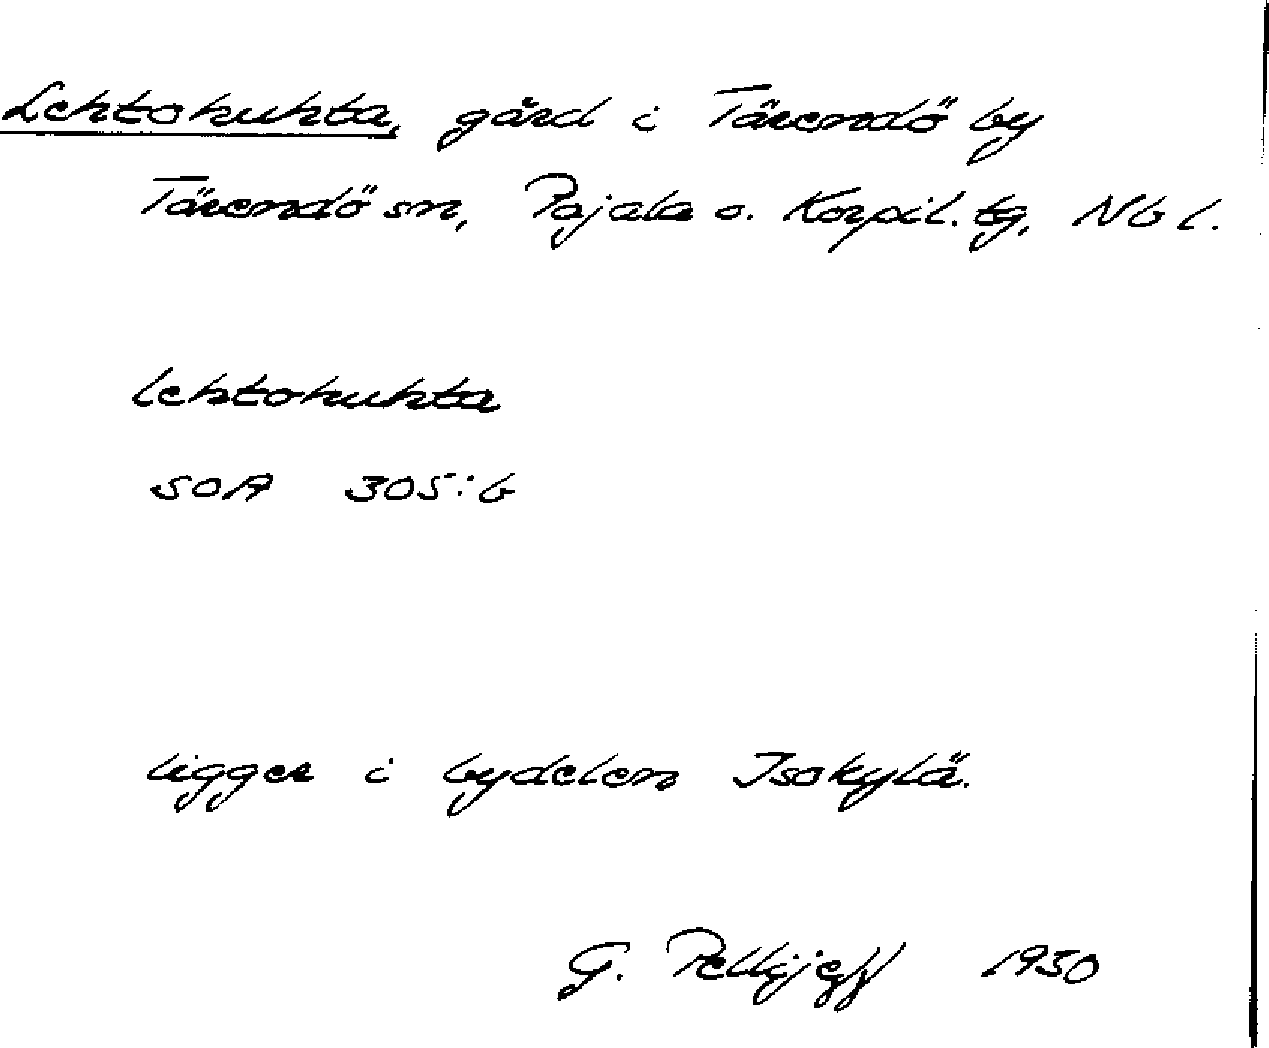 Lehtokuhta, gård i Tärendö by
Tärendö sn, Pajala o. Korpil. tg, Nb l.
lehtokuhta
SOA 305:6
ligger i bydelen Isokylä.
G. Pellijeff 1950